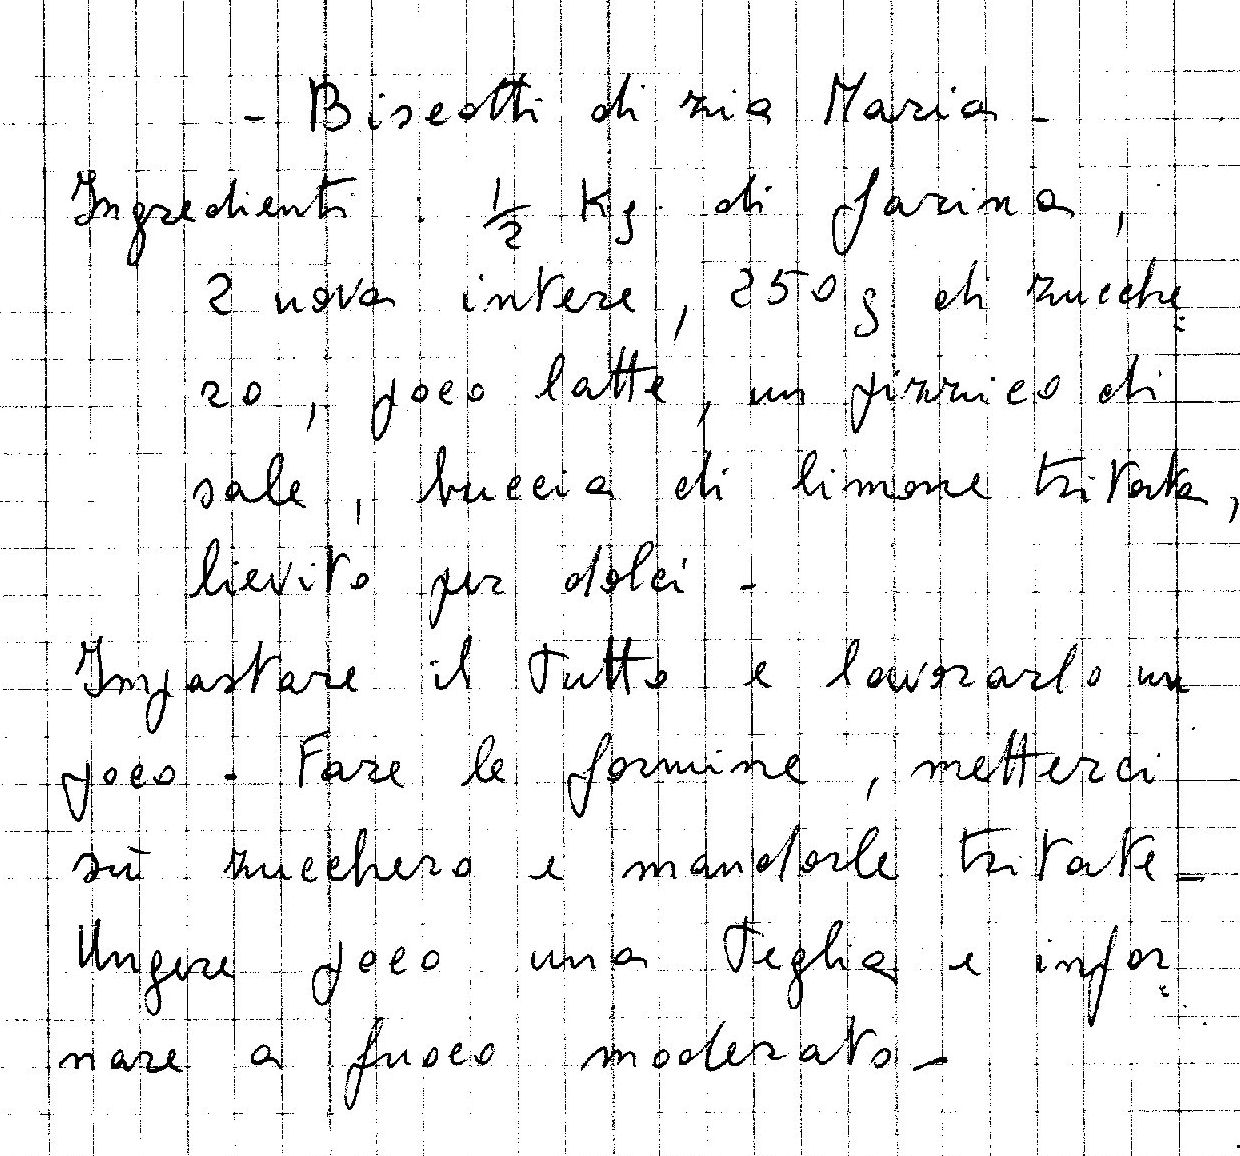 - Biscotti di zia Maria -
Ingredienti : 1/2 Kg. di farina,
2 uova intere, 250 g di zucche=
ro, poco latte, un pizzico di
sale, buccia di limone tritata,
lievito per dolci -
Impastare il tutto e lavorarlo un
poco - Fare le formine, metterci
sù zucchero e mandorle tritate -
Ungere poco una teglia e infor=
nare a fuoco moderato -